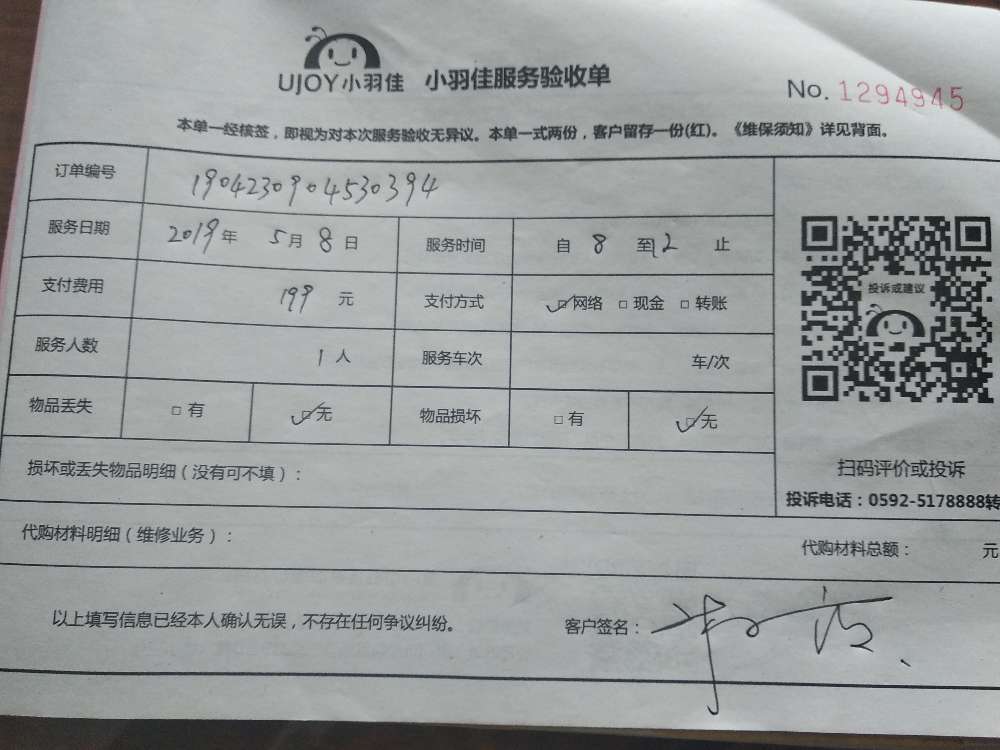 UJOY小羽佳 小羽佳服务验收单
No. 1294945
本单一经核签，即视为对本次服务验收无异议。本单一式两份，客户留存一份(红)。《维保须知》详见背面。
订单编号 1904230904530394
服务日期 2019年 5月 8日 服务时间 自 8 至12 止
支付费用 199 元 支付方式 ☑网络 □现金 □转账
服务人数 1人 服务车次 车/次
物品丢失 □有 ☑无 物品损坏 □有 ☑无
投诉或建议
扫码评价或投诉
投诉电话：0592-5178888转
损坏或丢失物品明细（没有可不填）：
代购材料明细（维修业务）： 代购材料总额： 元
以上填写信息已经本人确认无误，不存在任何争议纠纷。 客户签名：